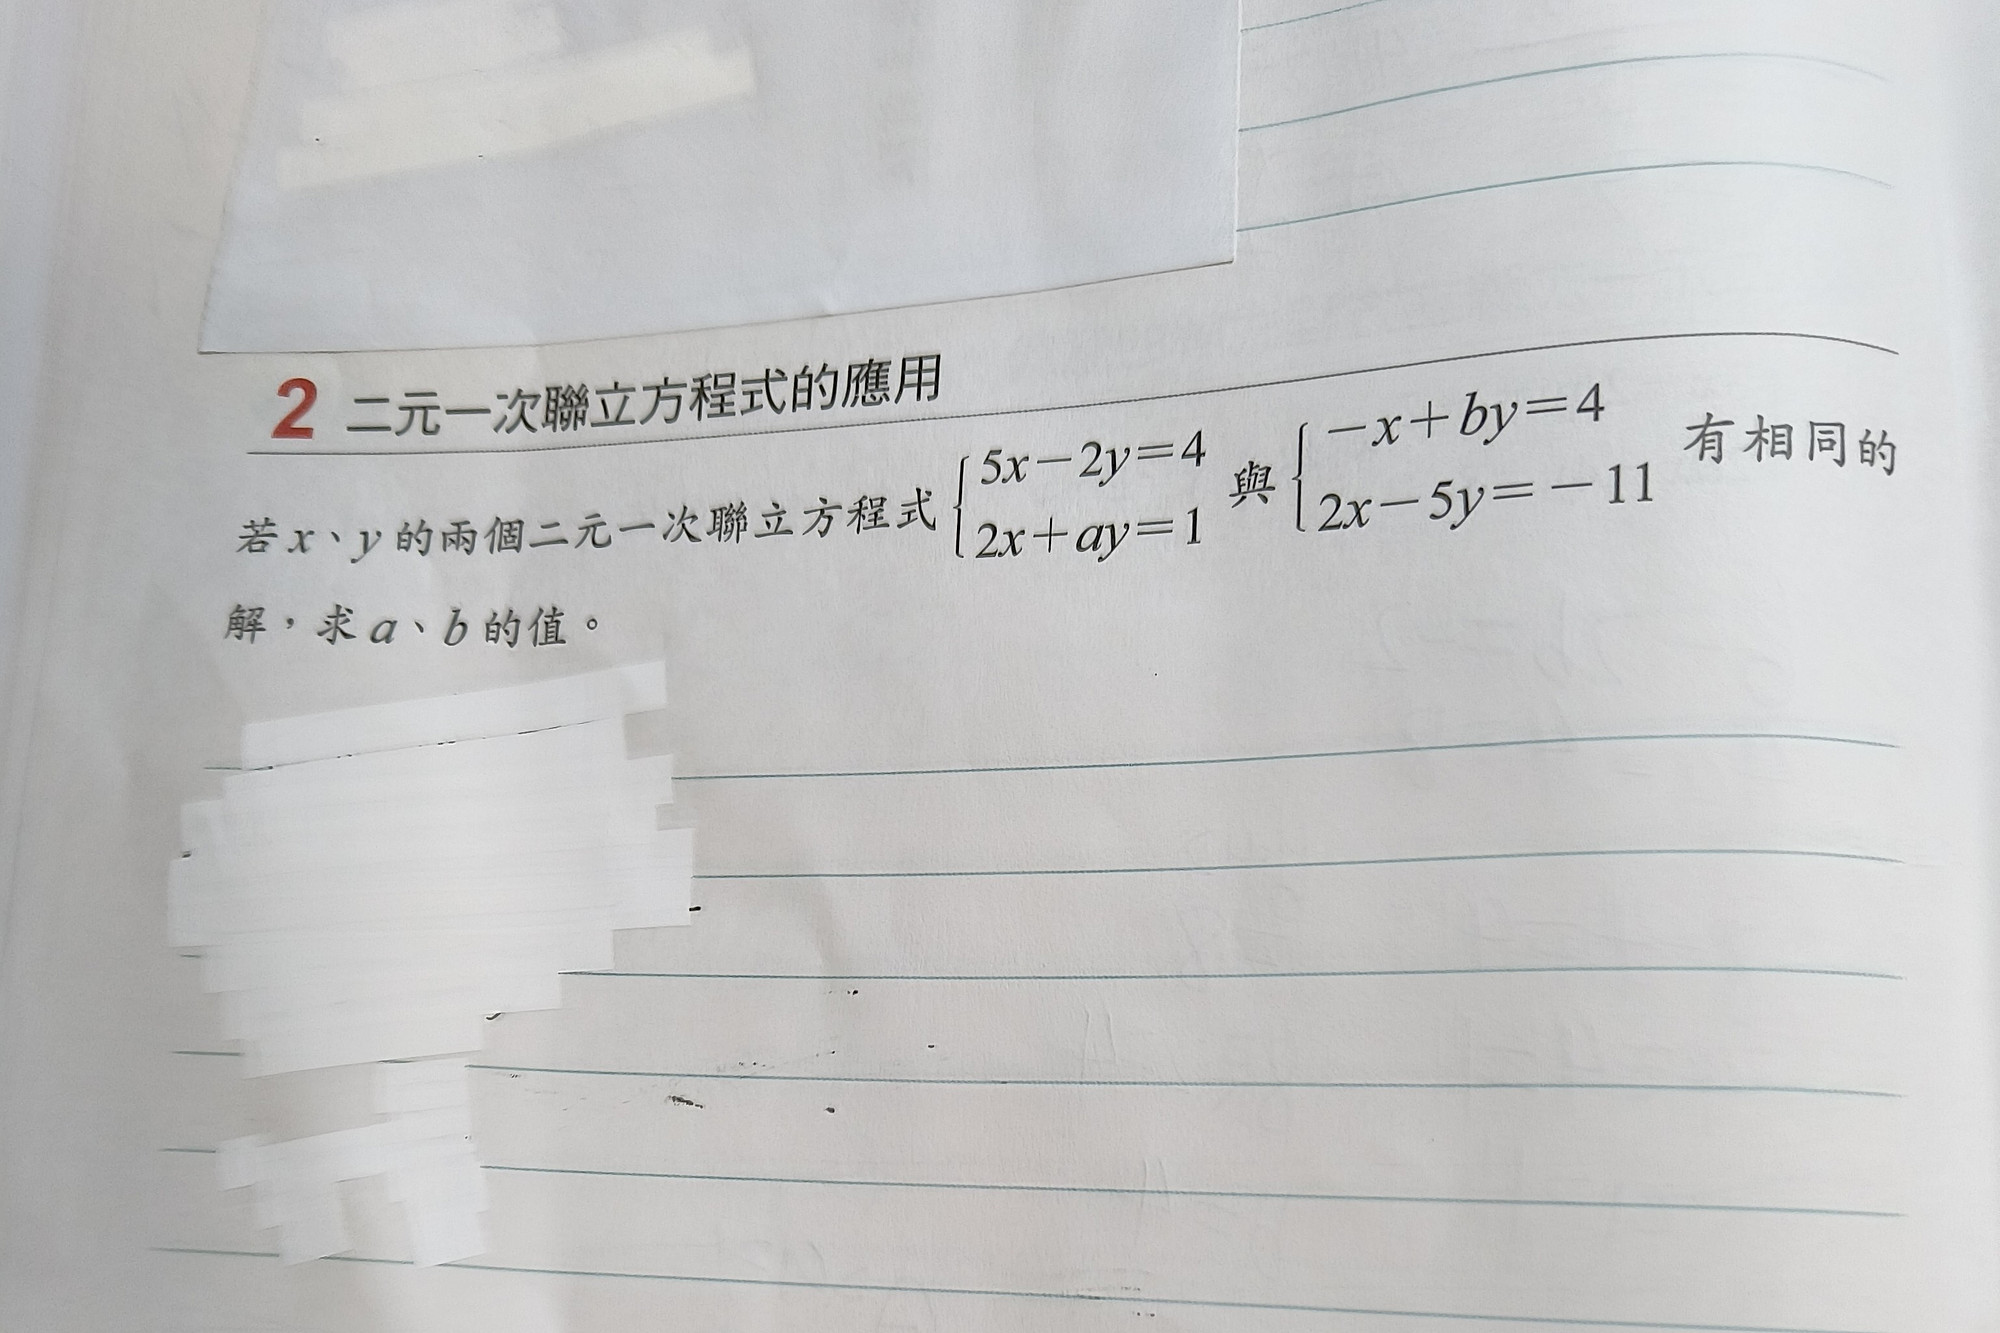 2 二元一次聯立方程式的應用
若 x、y 的兩個二元一次聯立方程式 { 5x－2y＝4 2x＋ay＝1 與 { －x＋by＝4 2x－5y＝－11 有相同的
解，求 a、b 的值。